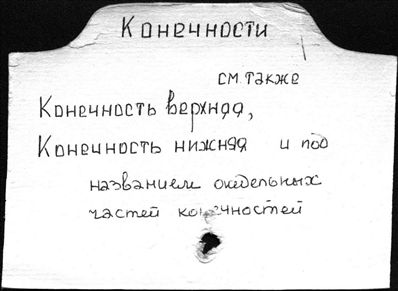 Конечности
см также
Конечность верхняя,
Конечность нижняя и под
названием отдельных
частей конечностей